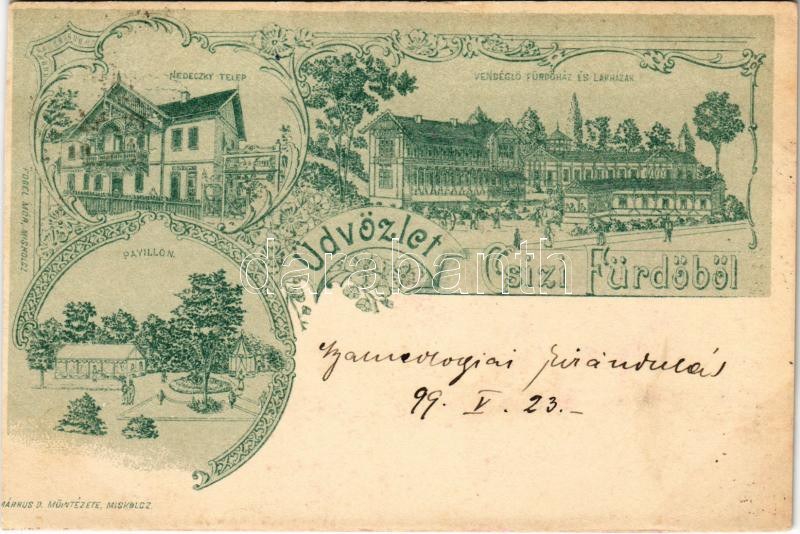 NEDECZKY TELEP
VENDÉGLŐ FÜRDŐHÁZ ÉS LAKHÁZAK
Üdvözlet
Csízi Fürdőből
PAVILLON.
MÓR, MISKOLCZ
darabanth.com
kirándulás
99. V. 23.-
MÁRKUS D. MŰINTÉZETE, MISKOLCZ.